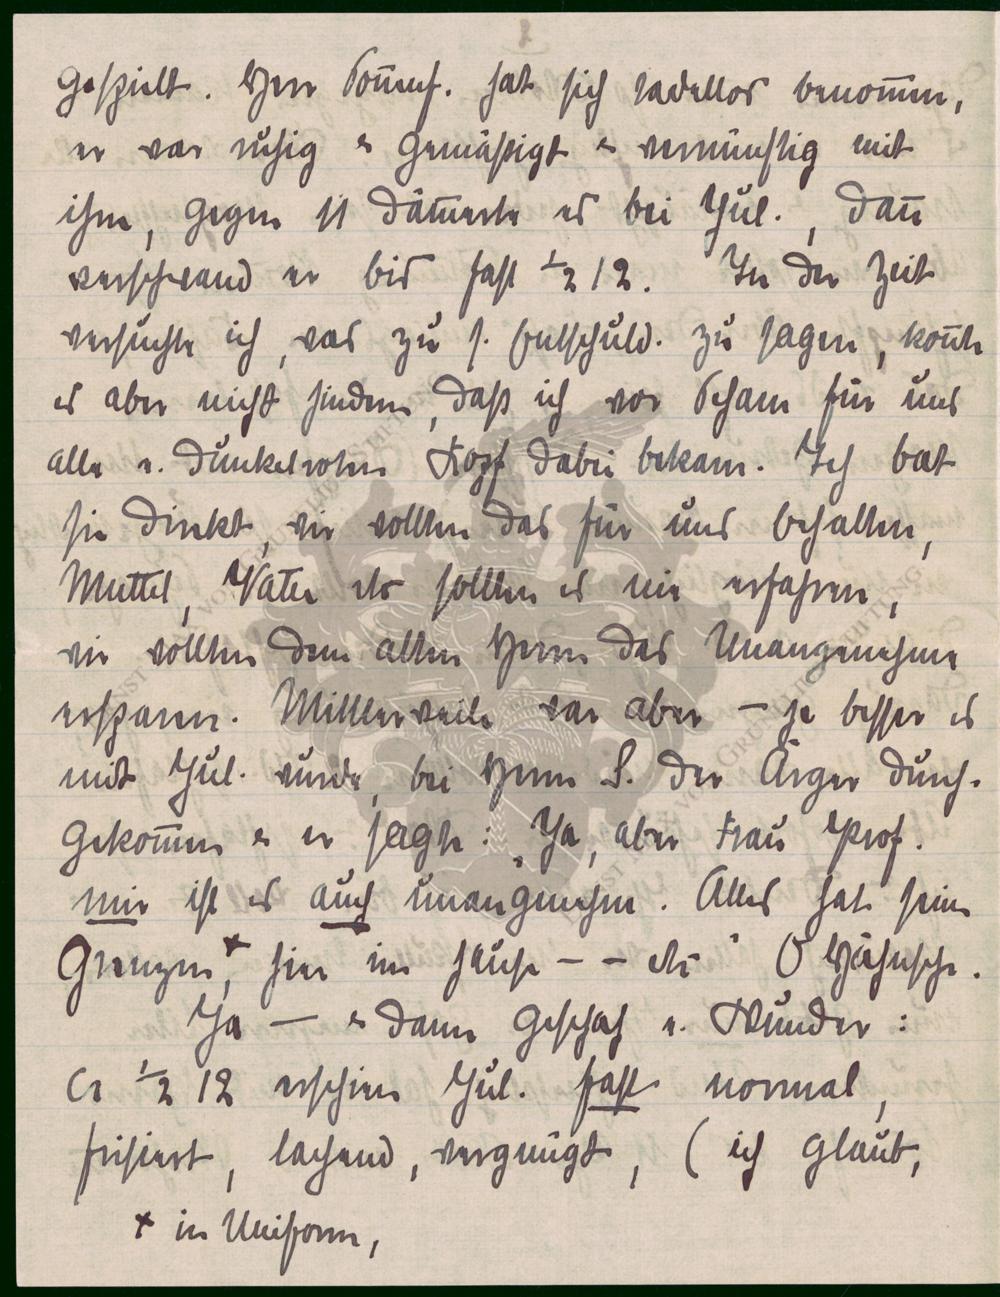 gespielt. Herr Somenf. hat sich tadellos benom̅en,
er war ruhig & gemäßigt & vernünftig mit
ihm, gegen 11 däm̅erte es bei Jul., dan̅
verschwand er bis fast ½ 12. In der Zeit
versuchte ich, was zu s. Entschuld. zu sagen, kon̅te
es aber nicht hindern, daß ich vor Scham für uns
alle e. dunkelroten Kopf dabei bekam. Ich bat
sie direkt, wir wollten das für uns behalten,
Muttel, Vater etc sollten es nie erfahren,
wir wollten dem alten Herrn das Unangenehme
ersparen. Mittlerweile war aber – je besser es
mit Jul. wurde, bei Herrn S. der Ärger durch-
gekom̅en & er sagte: „Ja, aber Frau Prof.
mir ist es auch unangenehm. Alles hat seine
Grenzen*, hier im Hause – – etc" O Hähnsche.
Ja – & dann geschah e. Wunder:
Ca ½ 12 erschien Jul. fast normal,
frisiert, lachend, vergnügt, (ich glaub,
* in Uniform,